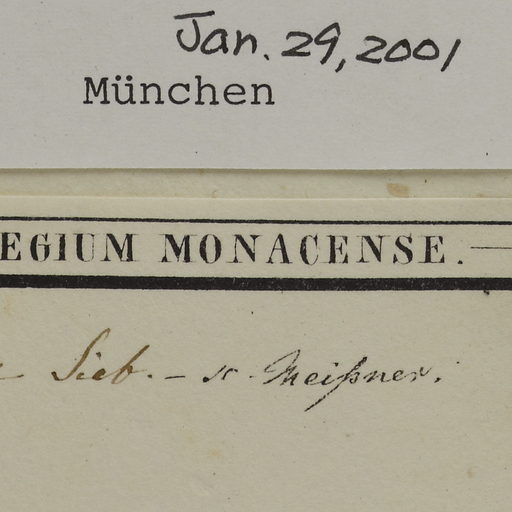 Jan. 29, 2001
München
EGIUM MONACENSE.
Sieb. – Meißner.